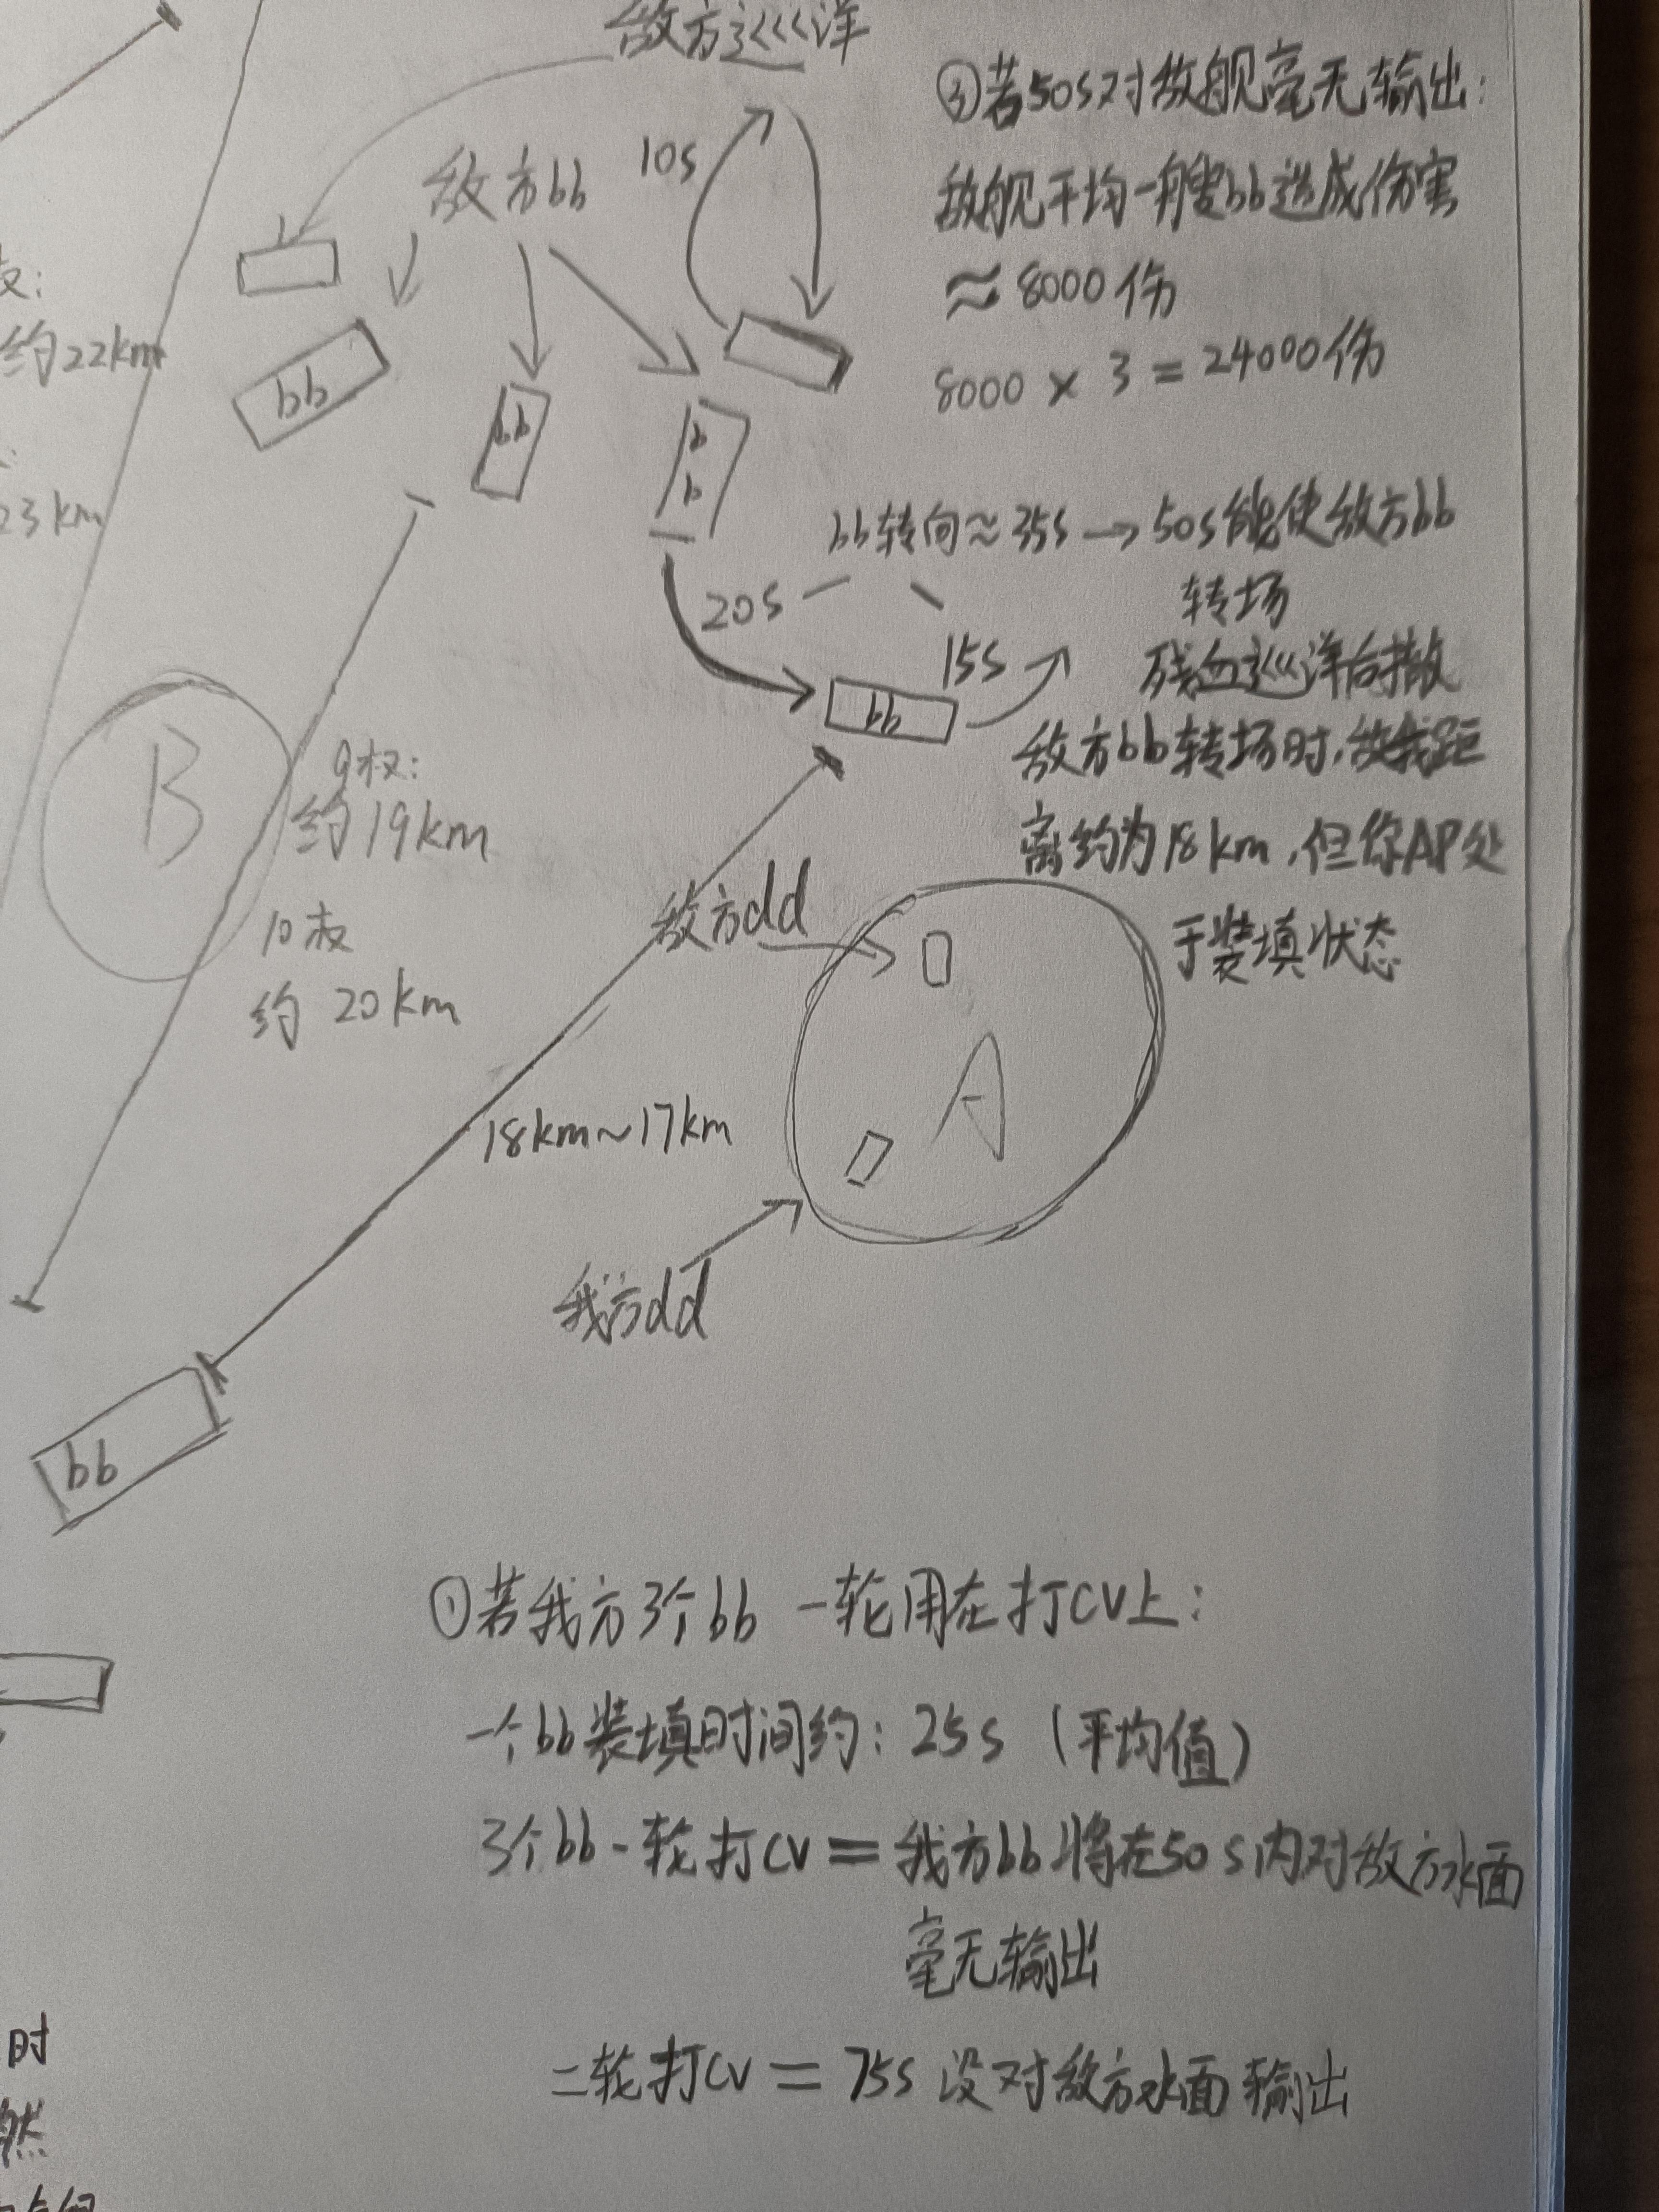 敌方巡洋
敌方bb
10s
bb
bb
bb
③若50s对敌舰毫无输出:
敌舰平均一艘bb造成伤害
≈8000伤
8000×3=24000伤
约22km
23km
bb转向≈35s→50s能使敌方bb
转场
20s
15s
bb
残血巡洋后撤
敌方bb转场时,敌我距
离约为18km,但你AP处
于装填状态
B
9权:
约19km
10权
约20km
敌方dd
A
18km~17km
我方dd
bb
①若我方3个bb一轮用在打CV上:
一个bb装填时间约:25s(平均值)
3个bb一轮打CV=我方bb将在50s内对敌方水面
毫无输出
二轮打CV=75s没对敌方水面输出
时
然